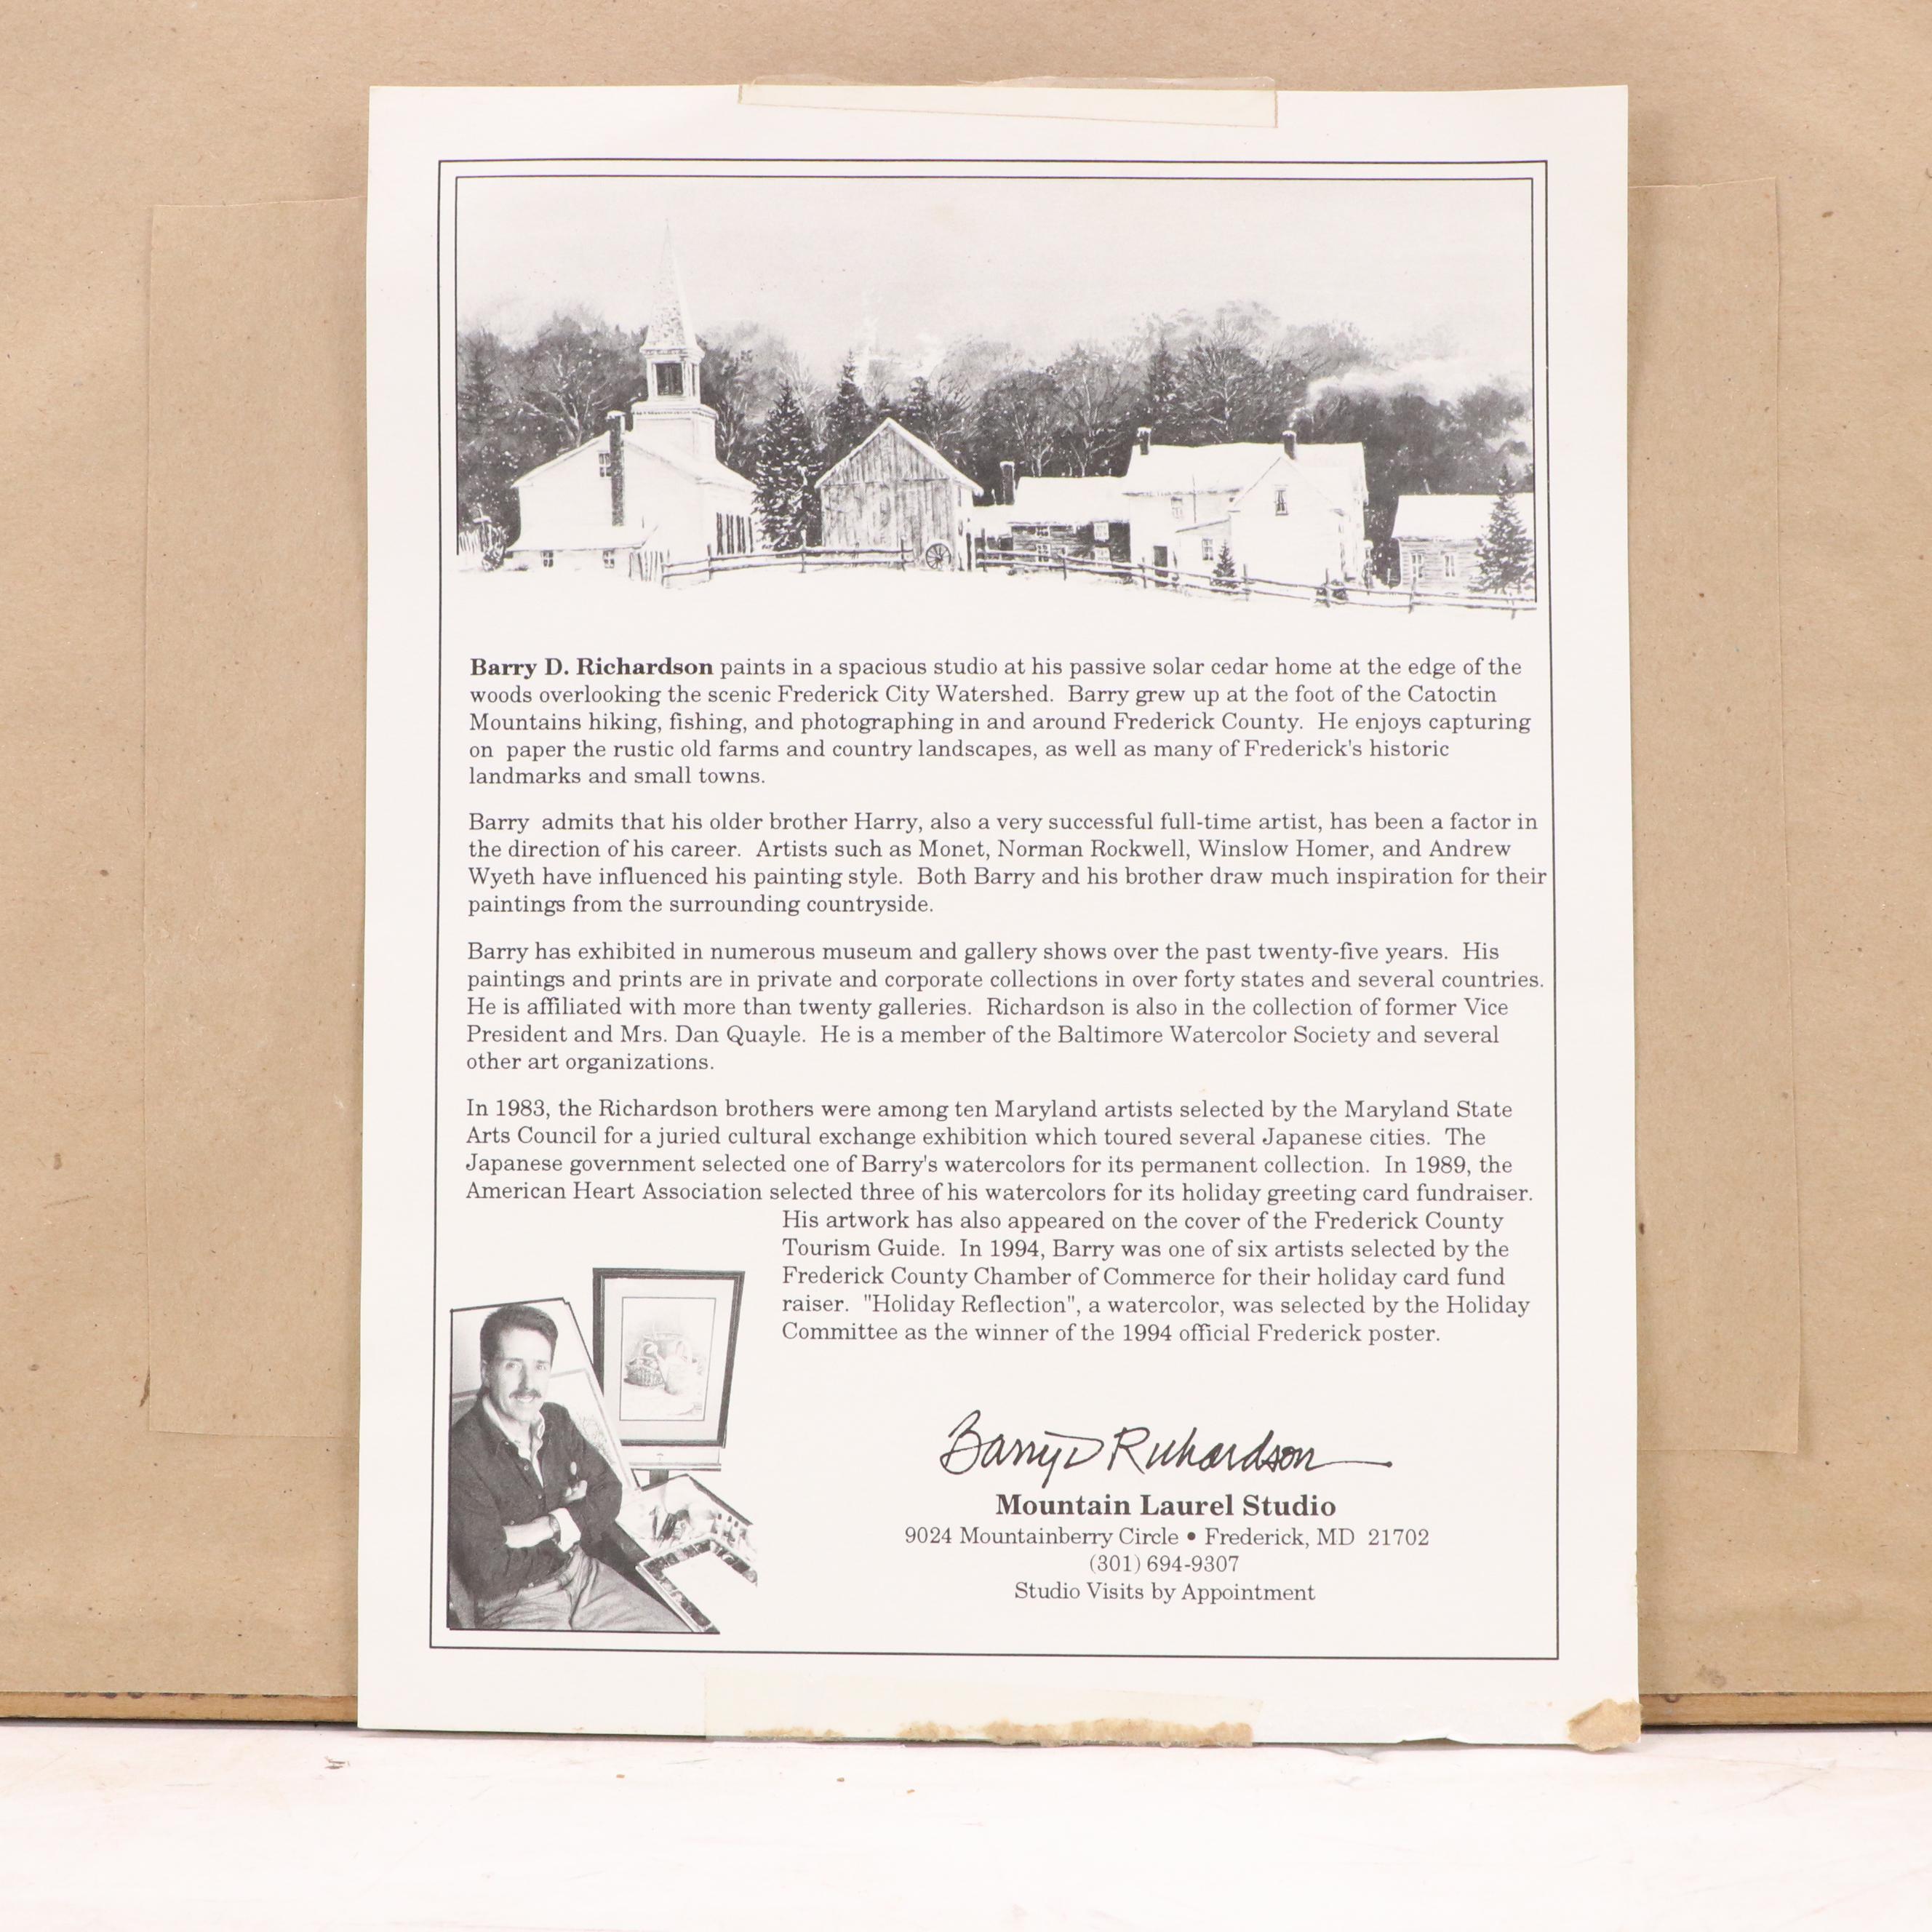 Barry D. Richardson paints in a spacious studio at his passive solar cedar home at the edge of the
woods overlooking the scenic Frederick City Watershed. Barry grew up at the foot of the Catoctin
Mountains hiking, fishing, and photographing in and around Frederick County. He enjoys capturing
on paper the rustic old farms and country landscapes, as well as many of Frederick's historic
landmarks and small towns.
Barry admits that his older brother Harry, also a very successful full-time artist, has been a factor in
the direction of his career. Artists such as Monet, Norman Rockwell, Winslow Homer, and Andrew
Wyeth have influenced his painting style. Both Barry and his brother draw much inspiration for their
paintings from the surrounding countryside.
Barry has exhibited in numerous museum and gallery shows over the past twenty-five years. His
paintings and prints are in private and corporate collections in over forty states and several countries.
He is affiliated with more than twenty galleries. Richardson is also in the collection of former Vice
President and Mrs. Dan Quayle. He is a member of the Baltimore Watercolor Society and several
other art organizations.
In 1983, the Richardson brothers were among ten Maryland artists selected by the Maryland State
Arts Council for a juried cultural exchange exhibition which toured several Japanese cities. The
Japanese government selected one of Barry's watercolors for its permanent collection. In 1989, the
American Heart Association selected three of his watercolors for its holiday greeting card fundraiser.
His artwork has also appeared on the cover of the Frederick County
Tourism Guide. In 1994, Barry was one of six artists selected by the
Frederick County Chamber of Commerce for their holiday card fund
raiser. "Holiday Reflection", a watercolor, was selected by the Holiday
Committee as the winner of the 1994 official Frederick poster.
Barry D Richardson
Mountain Laurel Studio
9024 Mountainberry Circle • Frederick, MD 21702
(301) 694-9307
Studio Visits by Appointment